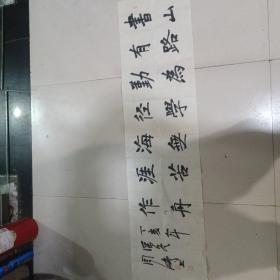 書山
有路
勤為
径學
海無
涯苦
作舟
丁亥年